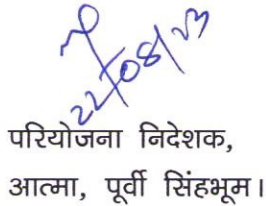 22/08/23
परियोजना निदेशक,
आत्मा, पूर्वी सिंहभूम।